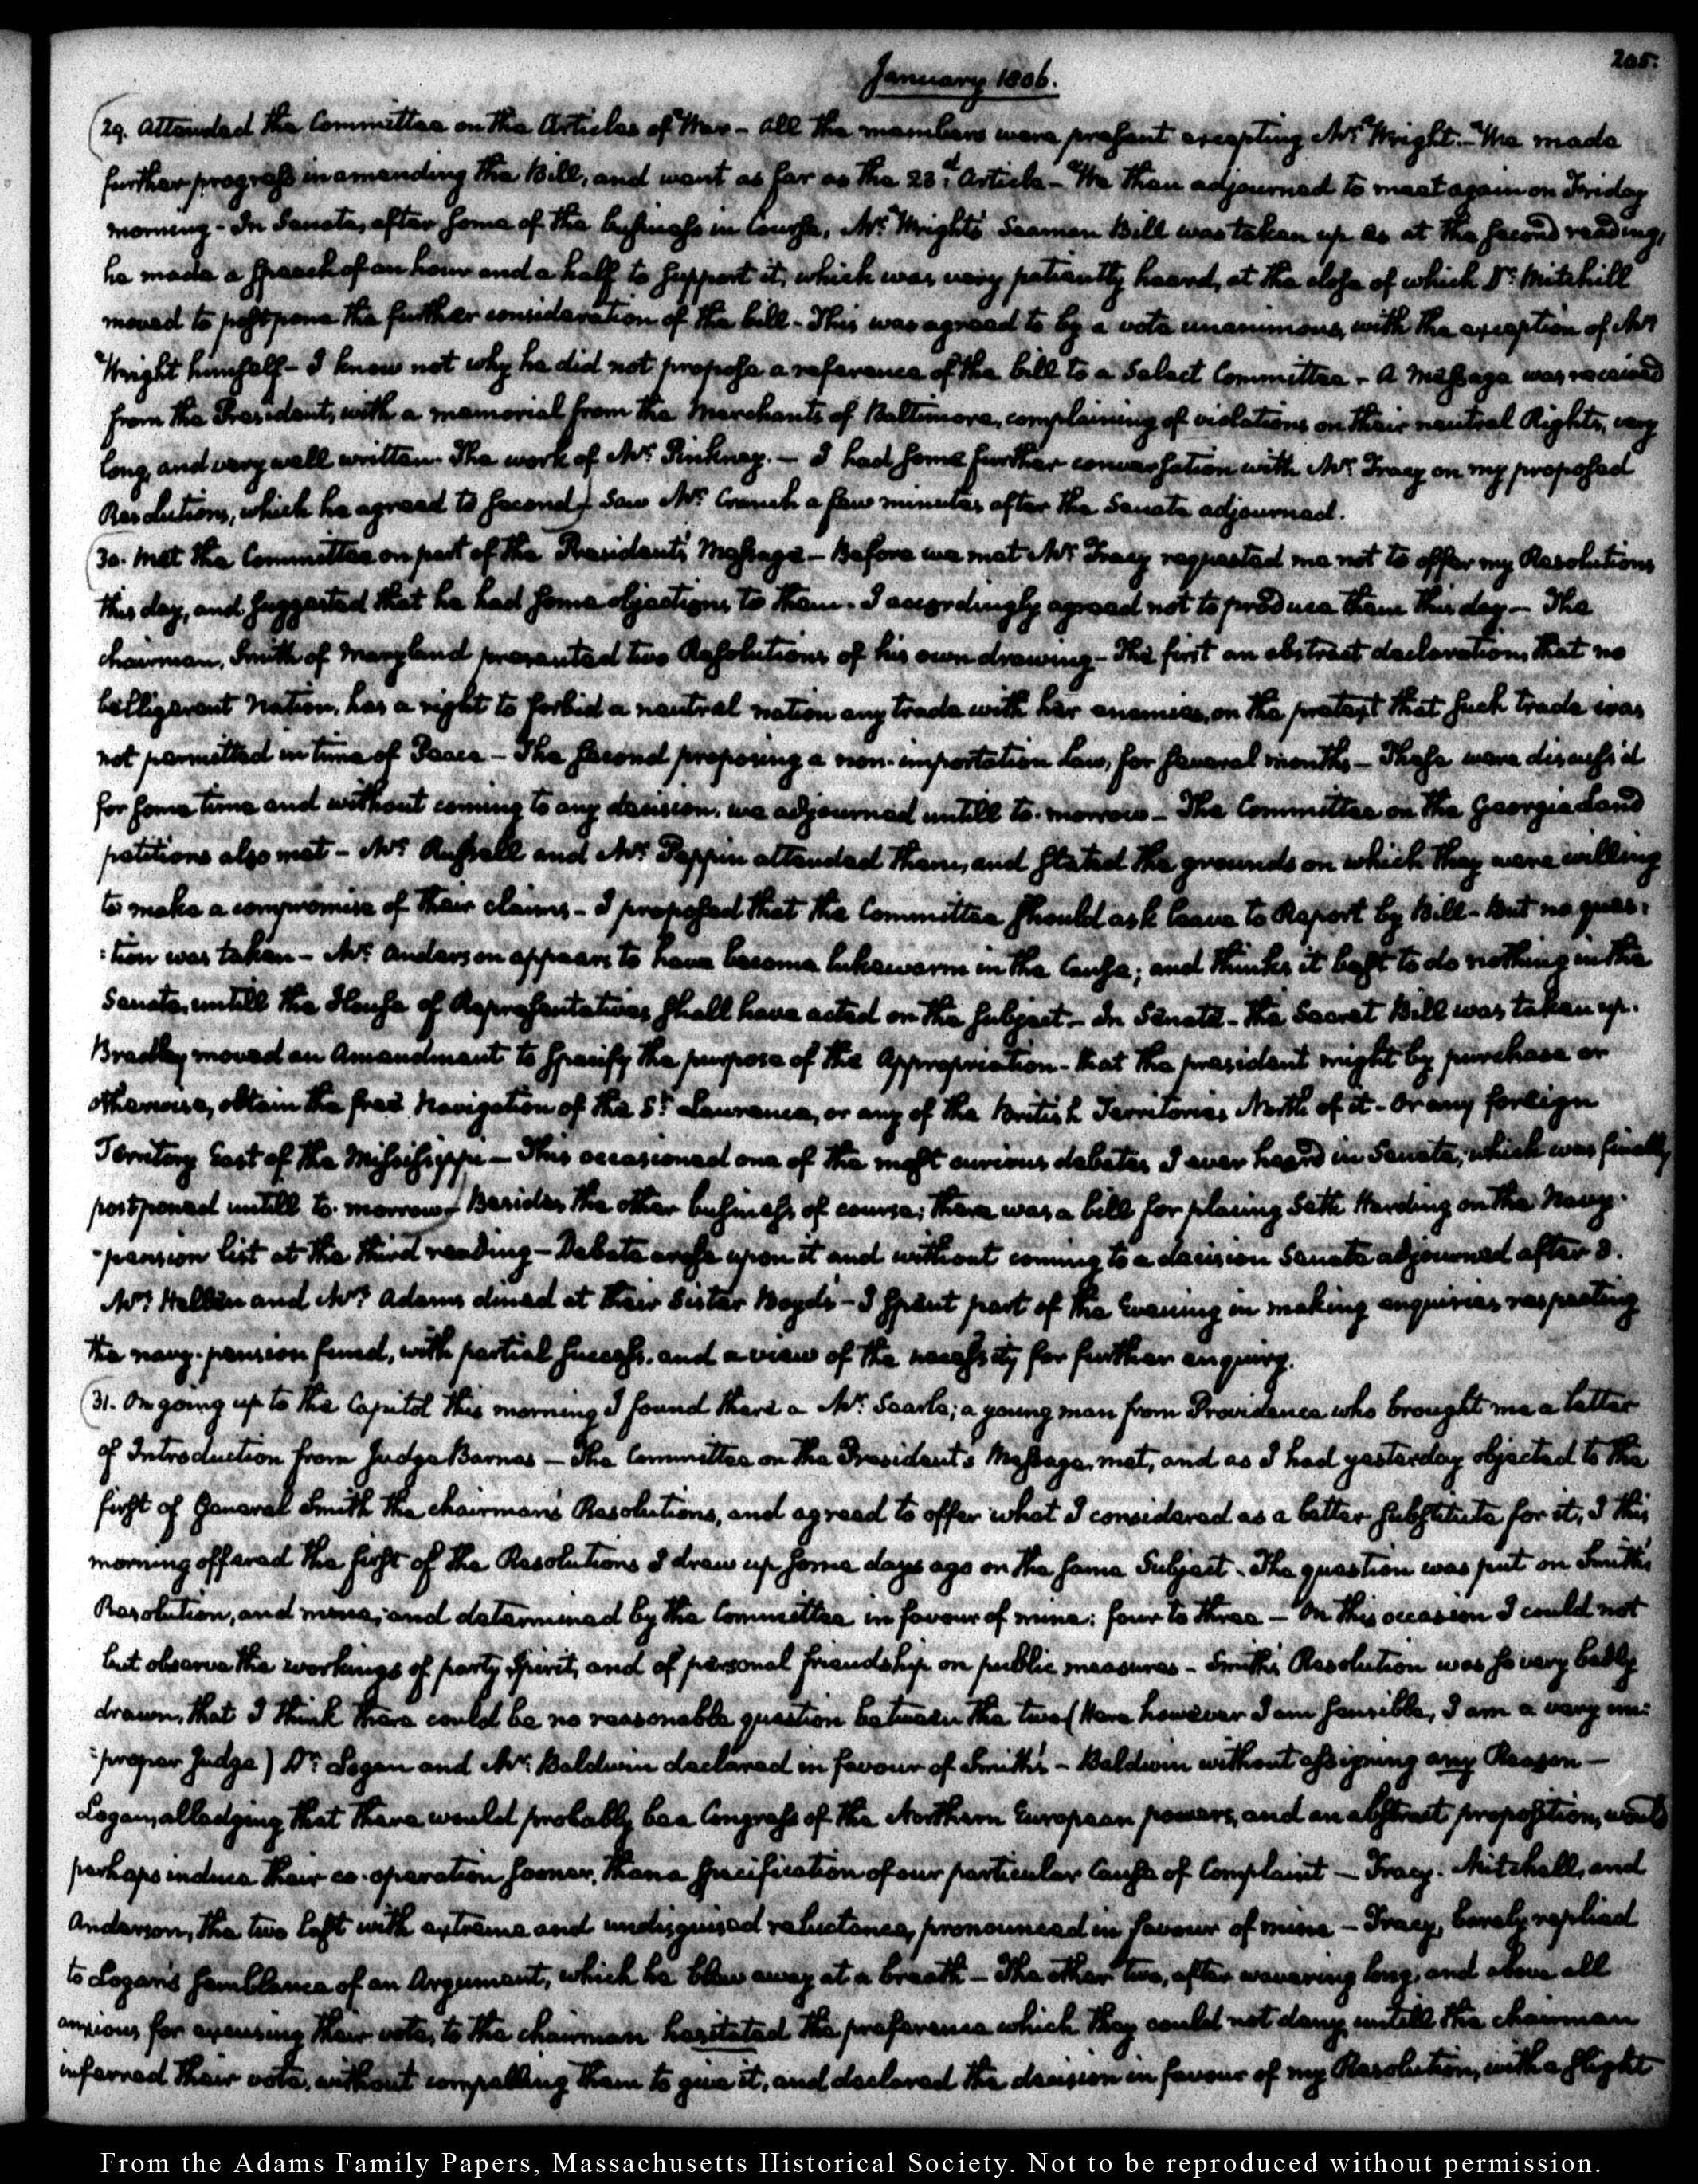 205.
January 1806.
29. Attended the Committee on the Articles of War - All the members were present excepting Mr. Wright. - We made
further progress in amending the Bill, and went as far as the 23d. Article - We then adjourned to meet again on Friday
morning - In Senate, after some of the business in course, Mr. Wright's Seamen Bill was taken up as at the second reading,
he made a speech of an hour and a half to support it, which was very patiently heard, at the close of which Dr. Mitchill
moved to postpone the further consideration of the bill - This was agreed to by a vote unanimous, with the exception of Mr.
Wright himself - I know not why he did not propose a reference of the bill to a Select Committee - A Message was received
from the President, with a memorial from the Merchants of Baltimore, complaining of violations on their neutral Rights, very
long, and very well written. The work of Mr. Pinkney. - I had some further conversation with Mr. Tracy on my proposed
Resolutions, which he agreed to second. Saw Mr. Cranch a few minutes after the Senate adjourned.
30. Met the Committee on part of the President's Message - Before we met Mr. Tracy requested me not to offer my Resolutions
this day, and suggested that he had some objections to them. I accordingly agreed not to produce them this day - The
chairman, Smith of Maryland presented two Resolutions of his own drawing - The first an abstract declaration, that no
belligerent Nation, has a right to forbid a neutral nation any trade with her enemies, on the pretext that such trade was
not permitted in time of Peace - The second proposing a non-importation Law, for several months - These were discuss'd
for some time and without coming to any decision, we adjourned untill to-morrow - The Committee on the Georgia Land
petitions also met - Mr. Russell and Mr. Peppin attended them, and stated the grounds on which they were willing
to make a compromise of their claims - I proposed that the Committee should ask leave to Report by Bill - But no ques:
:tion was taken - Mr. Anderson appears to have become lukewarm in the Cause; and thinks it best to do nothing in the
Senate, untill the House of Representatives shall have acted on the subject - In Senate - the Secret Bill was taken up.
Bradley moved an Amendment to specify the purpose of the Appropriation - that the president might by purchase or
otherwise, obtain the free Navigation of the St. Laurence, or any of the British Territories North of it - Or any foreign
Territory East of the Mississippi - This occasioned one of the most curious debates I ever heard in Senate, which was finally
postponed untill to-morrow - Besides the other business of course; there was a bill for placing Seth Harding on the Navy-
-pension list at the third reading - Debate arose upon it and without coming to a decision Senate adjourned after 3.
Mrs. Hellen and Mrs. Adams dined at their Sister Boyd's - I spent part of the Evening in making enquiries respecting
the navy-pension fund, with partial success, and a view of the necessity for further enquiry.
31. On going up to the Capitol this morning I found there a Mr. Searle; a young man from Providence who brought me a letter
of Introduction from Judge Barnes - The Committee on the President's Message, met, and as I had yesterday objected to the
first of General Smith the chairman's Resolutions, and agreed to offer what I considered as a better substitute for it, I this
morning offered the first of the Resolutions I drew up some days ago on the same Subject - The question was put on Smith's
Resolution, and mine; and determined by the Committee in favour of mine: four to three - On this occasion I could not
but observe the workings of party Spirit, and of personal friendship on public measures - Smith's Resolution was so very badly
drawn, that I think there could be no reasonable question between the two (Here however I am sensible, I am a very im:
:proper Judge) Dr. Logan and Mr. Baldwin declared in favour of Smith's - Baldwin without assigning any Reason -
Logan, alledging that there would probably be a Congress of the Northern European powers, and an abstract proposition, would
perhaps induce their co-operation sooner, than a specification of our particular Cause of Complaint - Tracy. Mitchell, and
Anderson, the two last with extreme and undisguised reluctance, pronounced in favour of mine - Tracy, barely replied
to Logan's semblance of an Argument, which he blew away at a breath - The other two, after wavering long, and above all
anxious for excusing their vote, to the chairman hesitated the preference which they could not deny, untill the chairman
inferred their vote, without compelling them to give it, and declared the decision in favour of my Resolution, with a slight
From the Adams Family Papers, Massachusetts Historical Society. Not to be reproduced without permission.